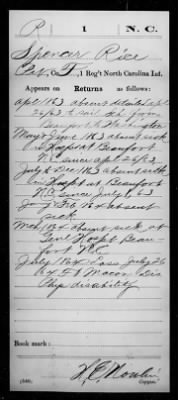 R | 1 | N. C.
Spencer Rice
Pvt, Co. F, 1 Reg't North Carolina Inf.
Appears on
Returns as follows:
Apl 1863 absent detailed Apl
26/63 to
Beaufort to Washington
May & June 1863 absent sick
in Hospt at Beaufort
N.C. since Apl 26/63
July to Dec 1863 absent sick
in Hospt at Beaufort
N.C. since July 6/63
Jan & Feb 1864 absent
sick
Mch 1864 absent sick at
Genl Hospt Beau-
fort N.C.
July 1864 Loss July 26
64 Ft Macon Dis
Phys disability
Book mark:
(546)
Copyist.